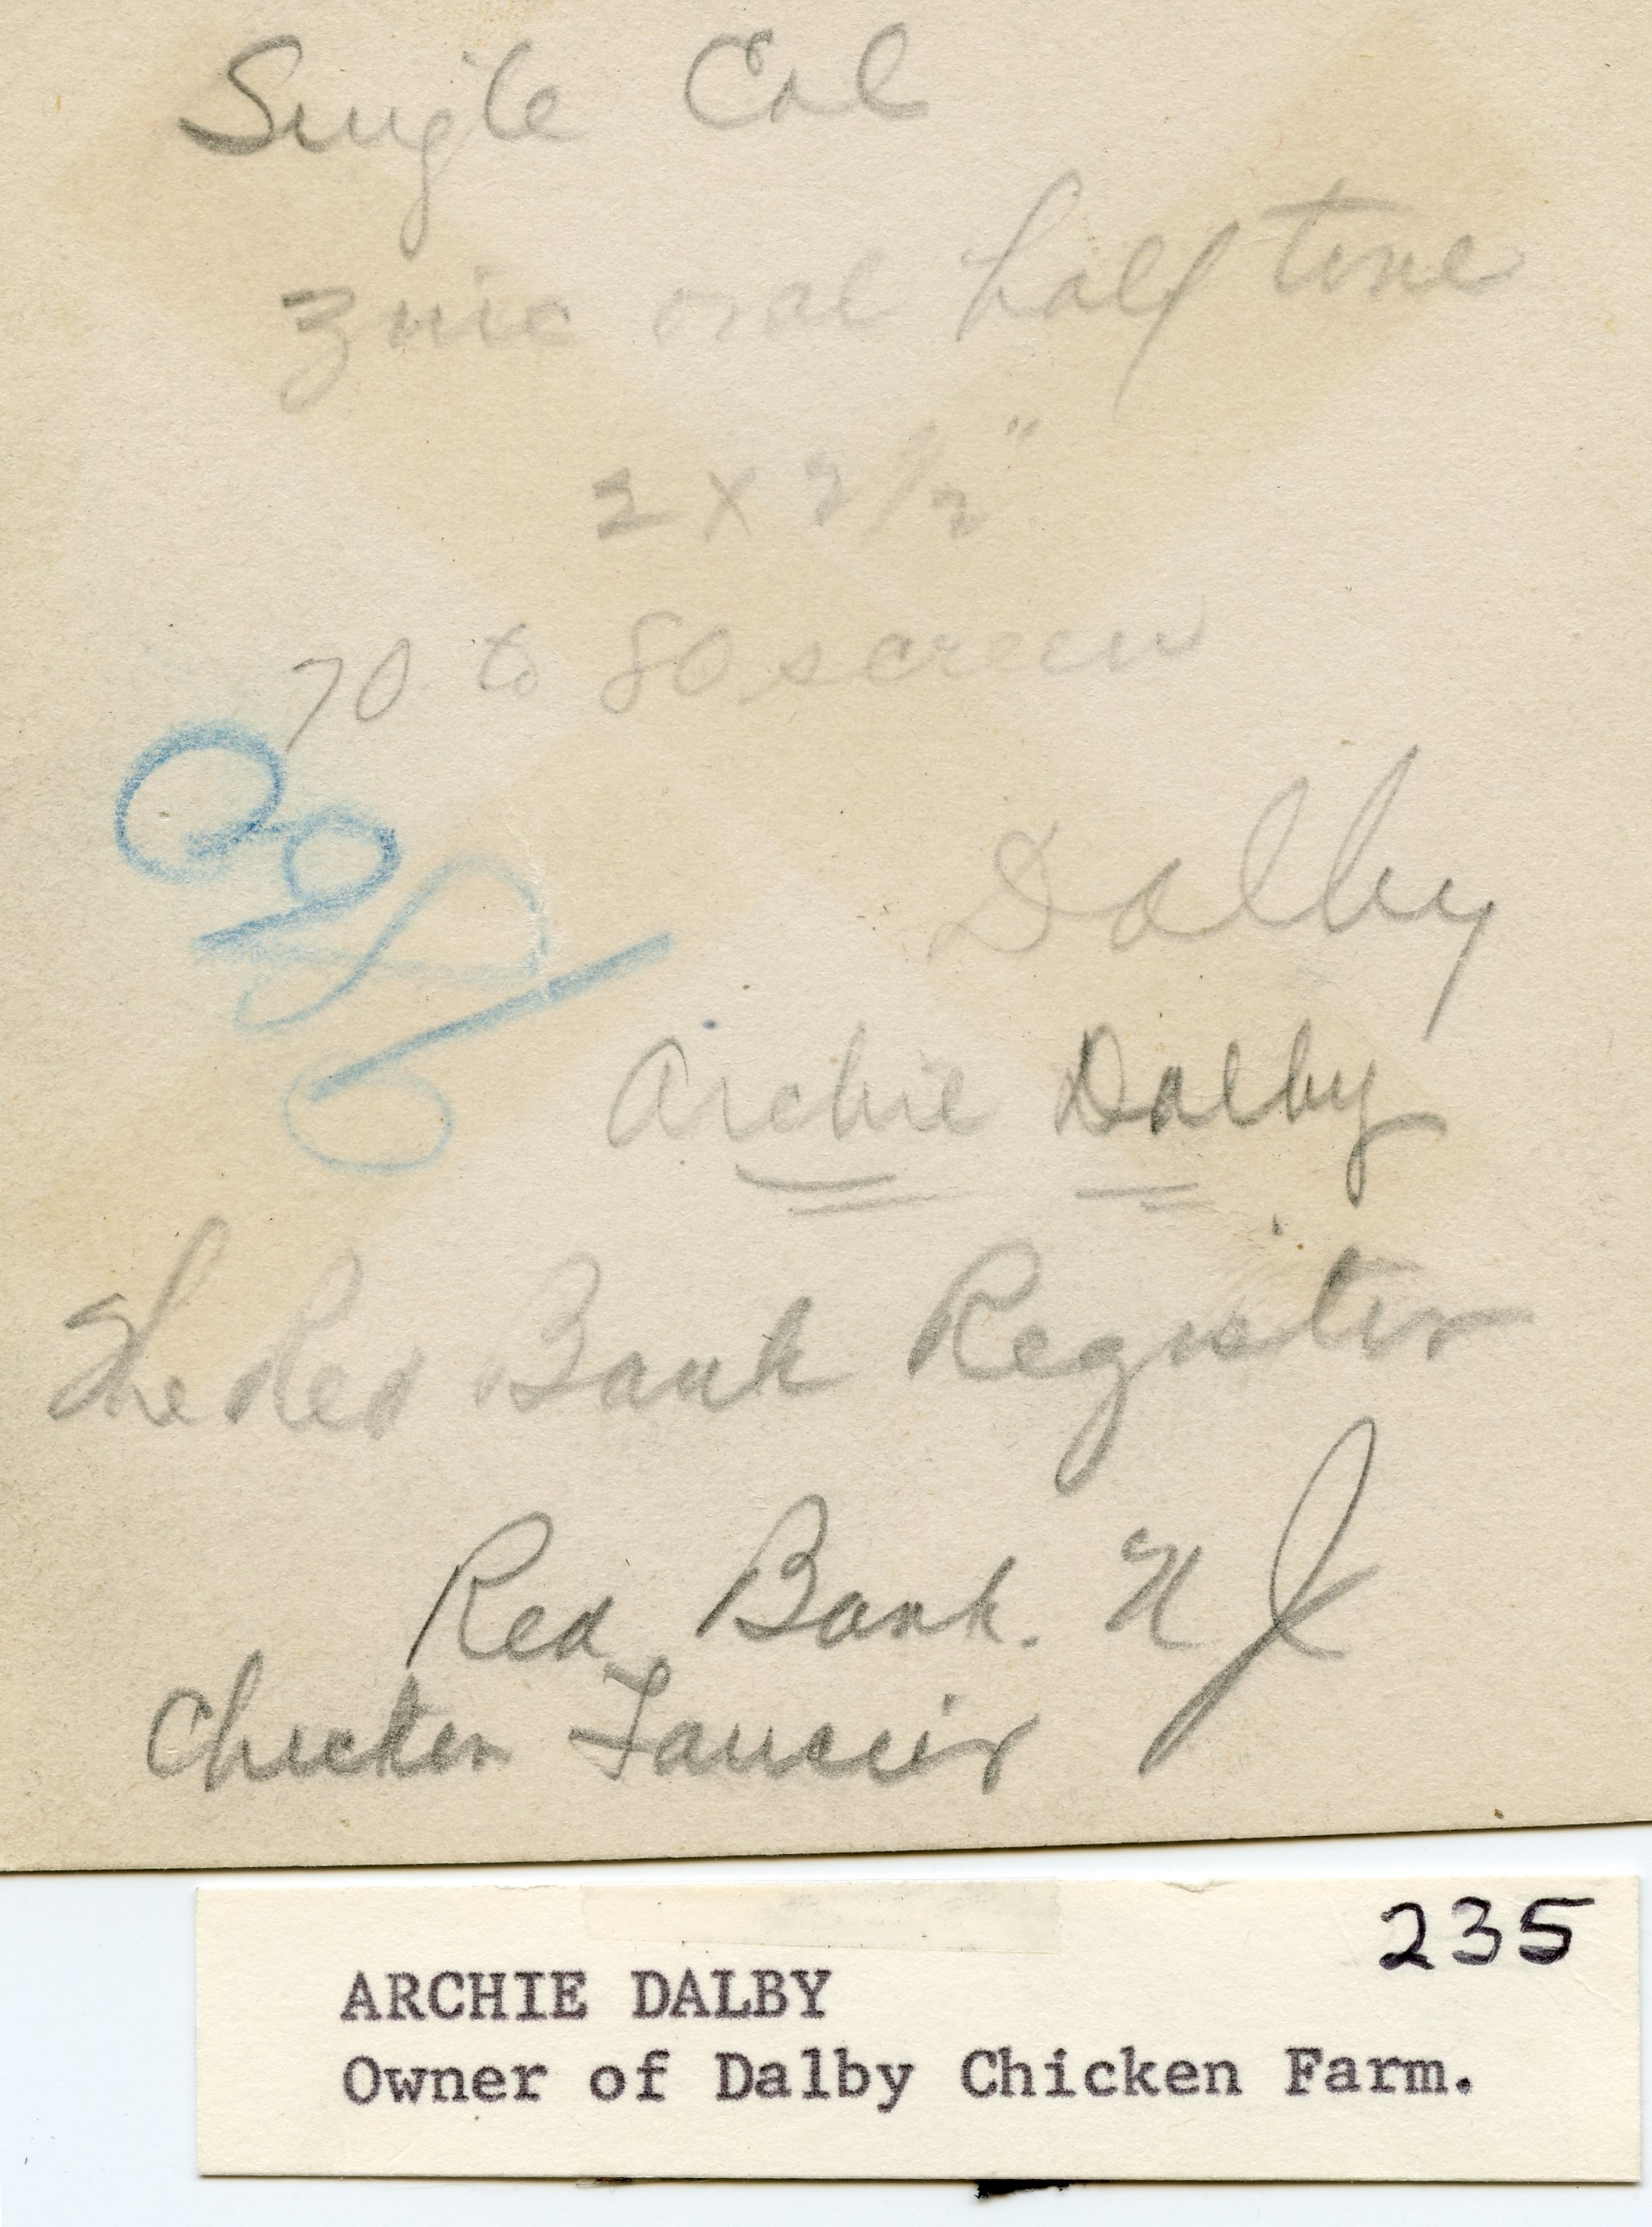 Single Col
Zinc oval half tone
2 x 2 1/2"
70 to 80 screen
Dalby
Archie Dalby
The Red Bank Register
Red Bank. N J
Chicken Fancier
235
ARCHIE DALBY
Owner of Dalby Chicken Farm.